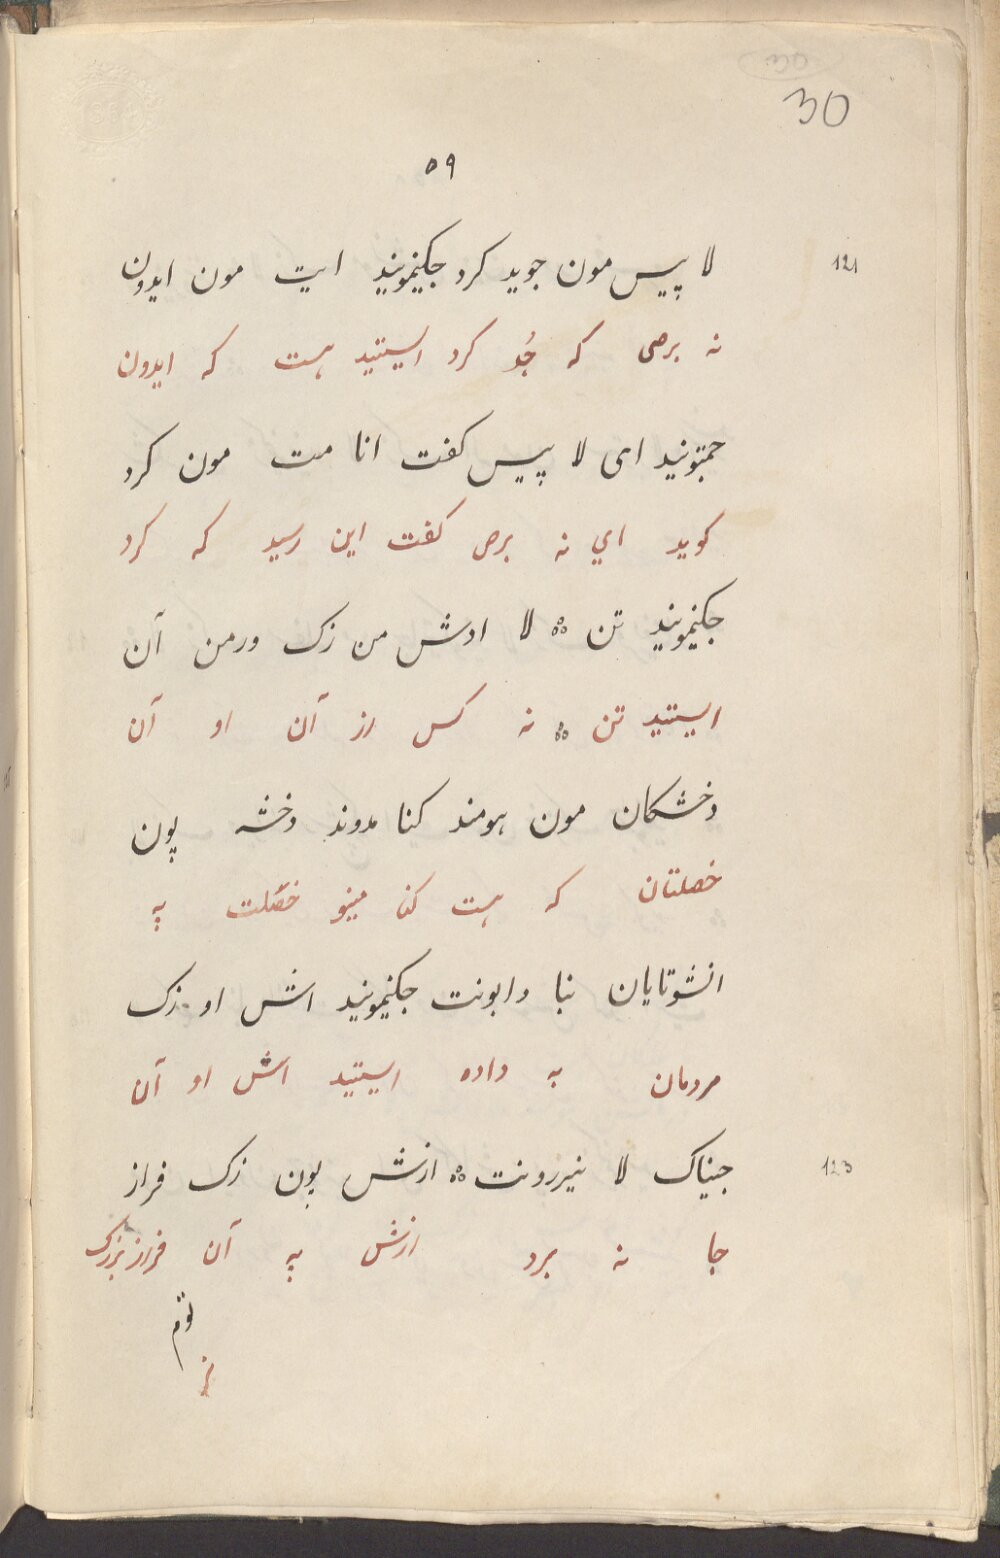 30
۵۹
121
لا پیس مون جوید کرد جکنیمونید ایت مون ایدون
نه برصی که جُد کرد ایستید هست که ایدون
جمتونید ای لا پیس کفت انا مت مون کرد
کوید اي نه برص کفت این رسید که کرد
جکنیمونید تن ؞ لا ادش من زک ورمن آن
ایستید تن ؞ نه کس از آن او آن
دخشکان مون هومند کنا مدوند دخشه پون
خصلتان که هست کنا مینو خصلت په
انشوتایان بنا دابونت جکنیمونید اش او زک
مردمان به داده ایستید اش او آن
123
جیناک لا نیبررونت ؞ ازش پون زک فراز
جا نه برد ازش په آن فراز بزرک
توم